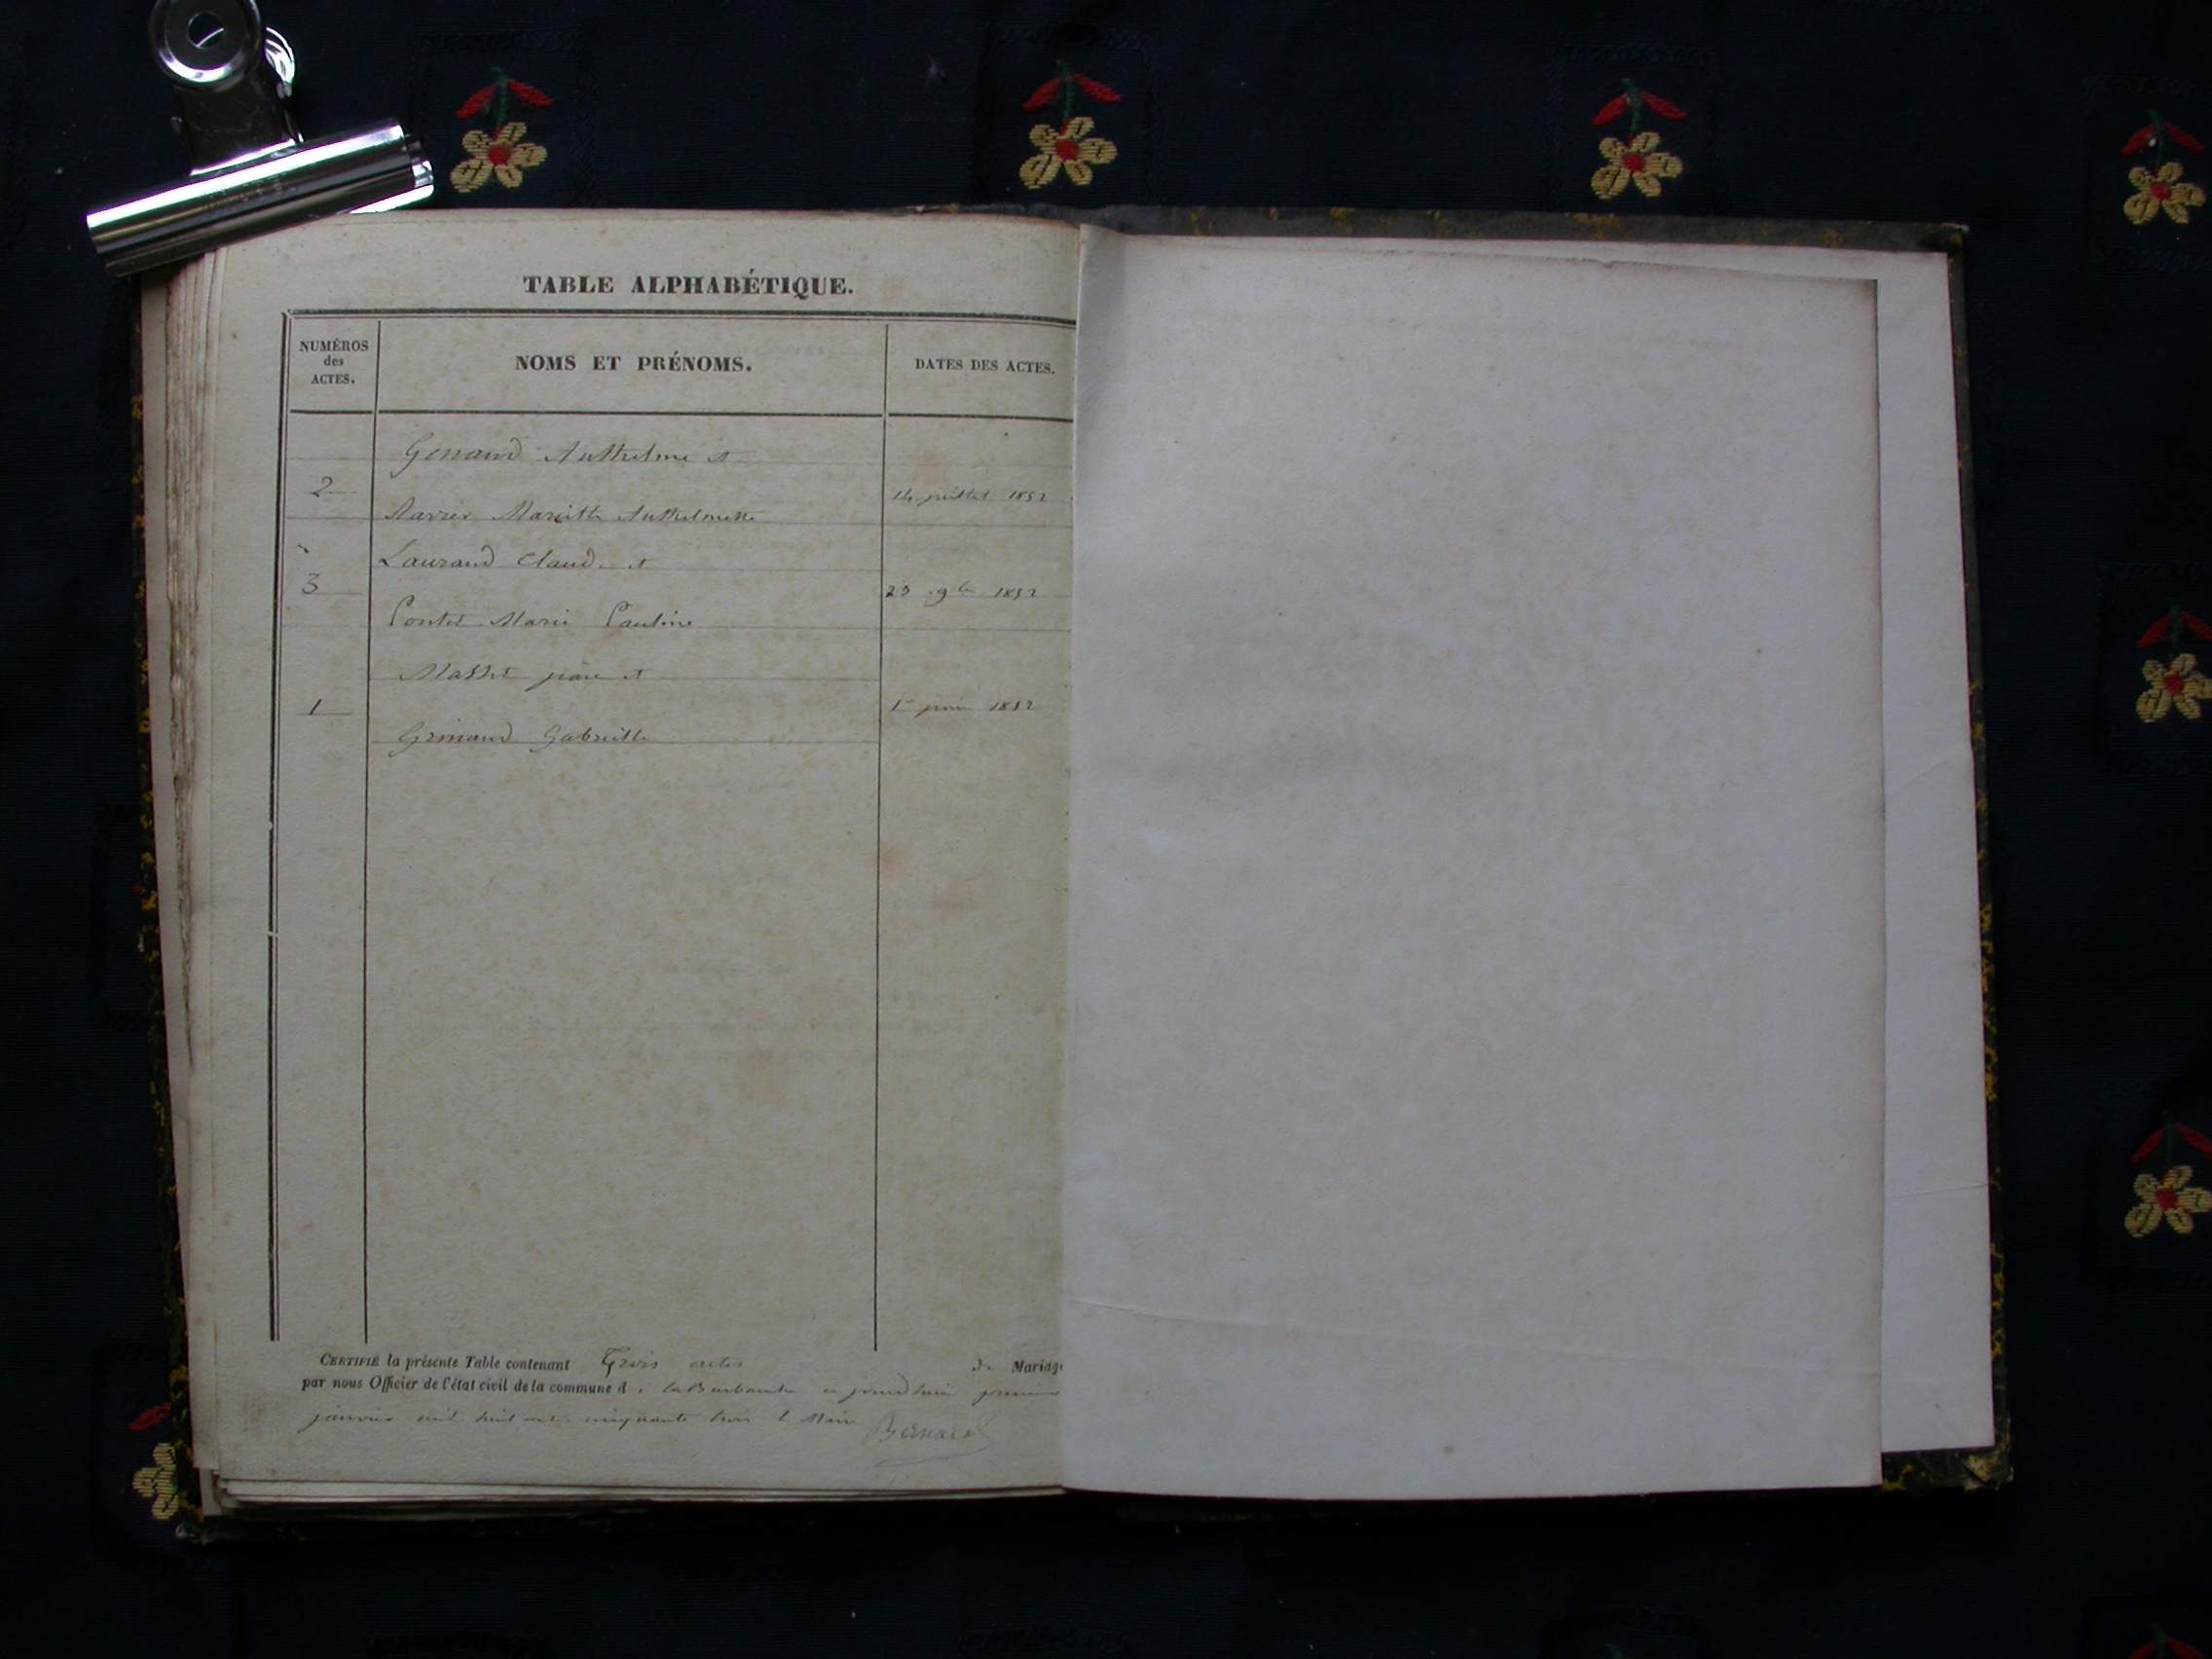 TABLE ALPHABÉTIQUE.
NUMÉROS
des
ACTES.
NOMS ET PRÉNOMS.
DATES DES ACTES.
Anthelme et
2 14 juillet 1852
Mariette Anthelmette
Laurand Claude et
3 23 9bre 1852
Pontet Marie Pauline
Masset et
1 1er juin 1852
Gabrielle
CERTIFIÉ la présente Table contenant Trois actes de Mariage
par nous Officier de l'état civil de la commune d ce jourd'hui premier
janvier mil huit cent cinquante trois le Maire Bernard